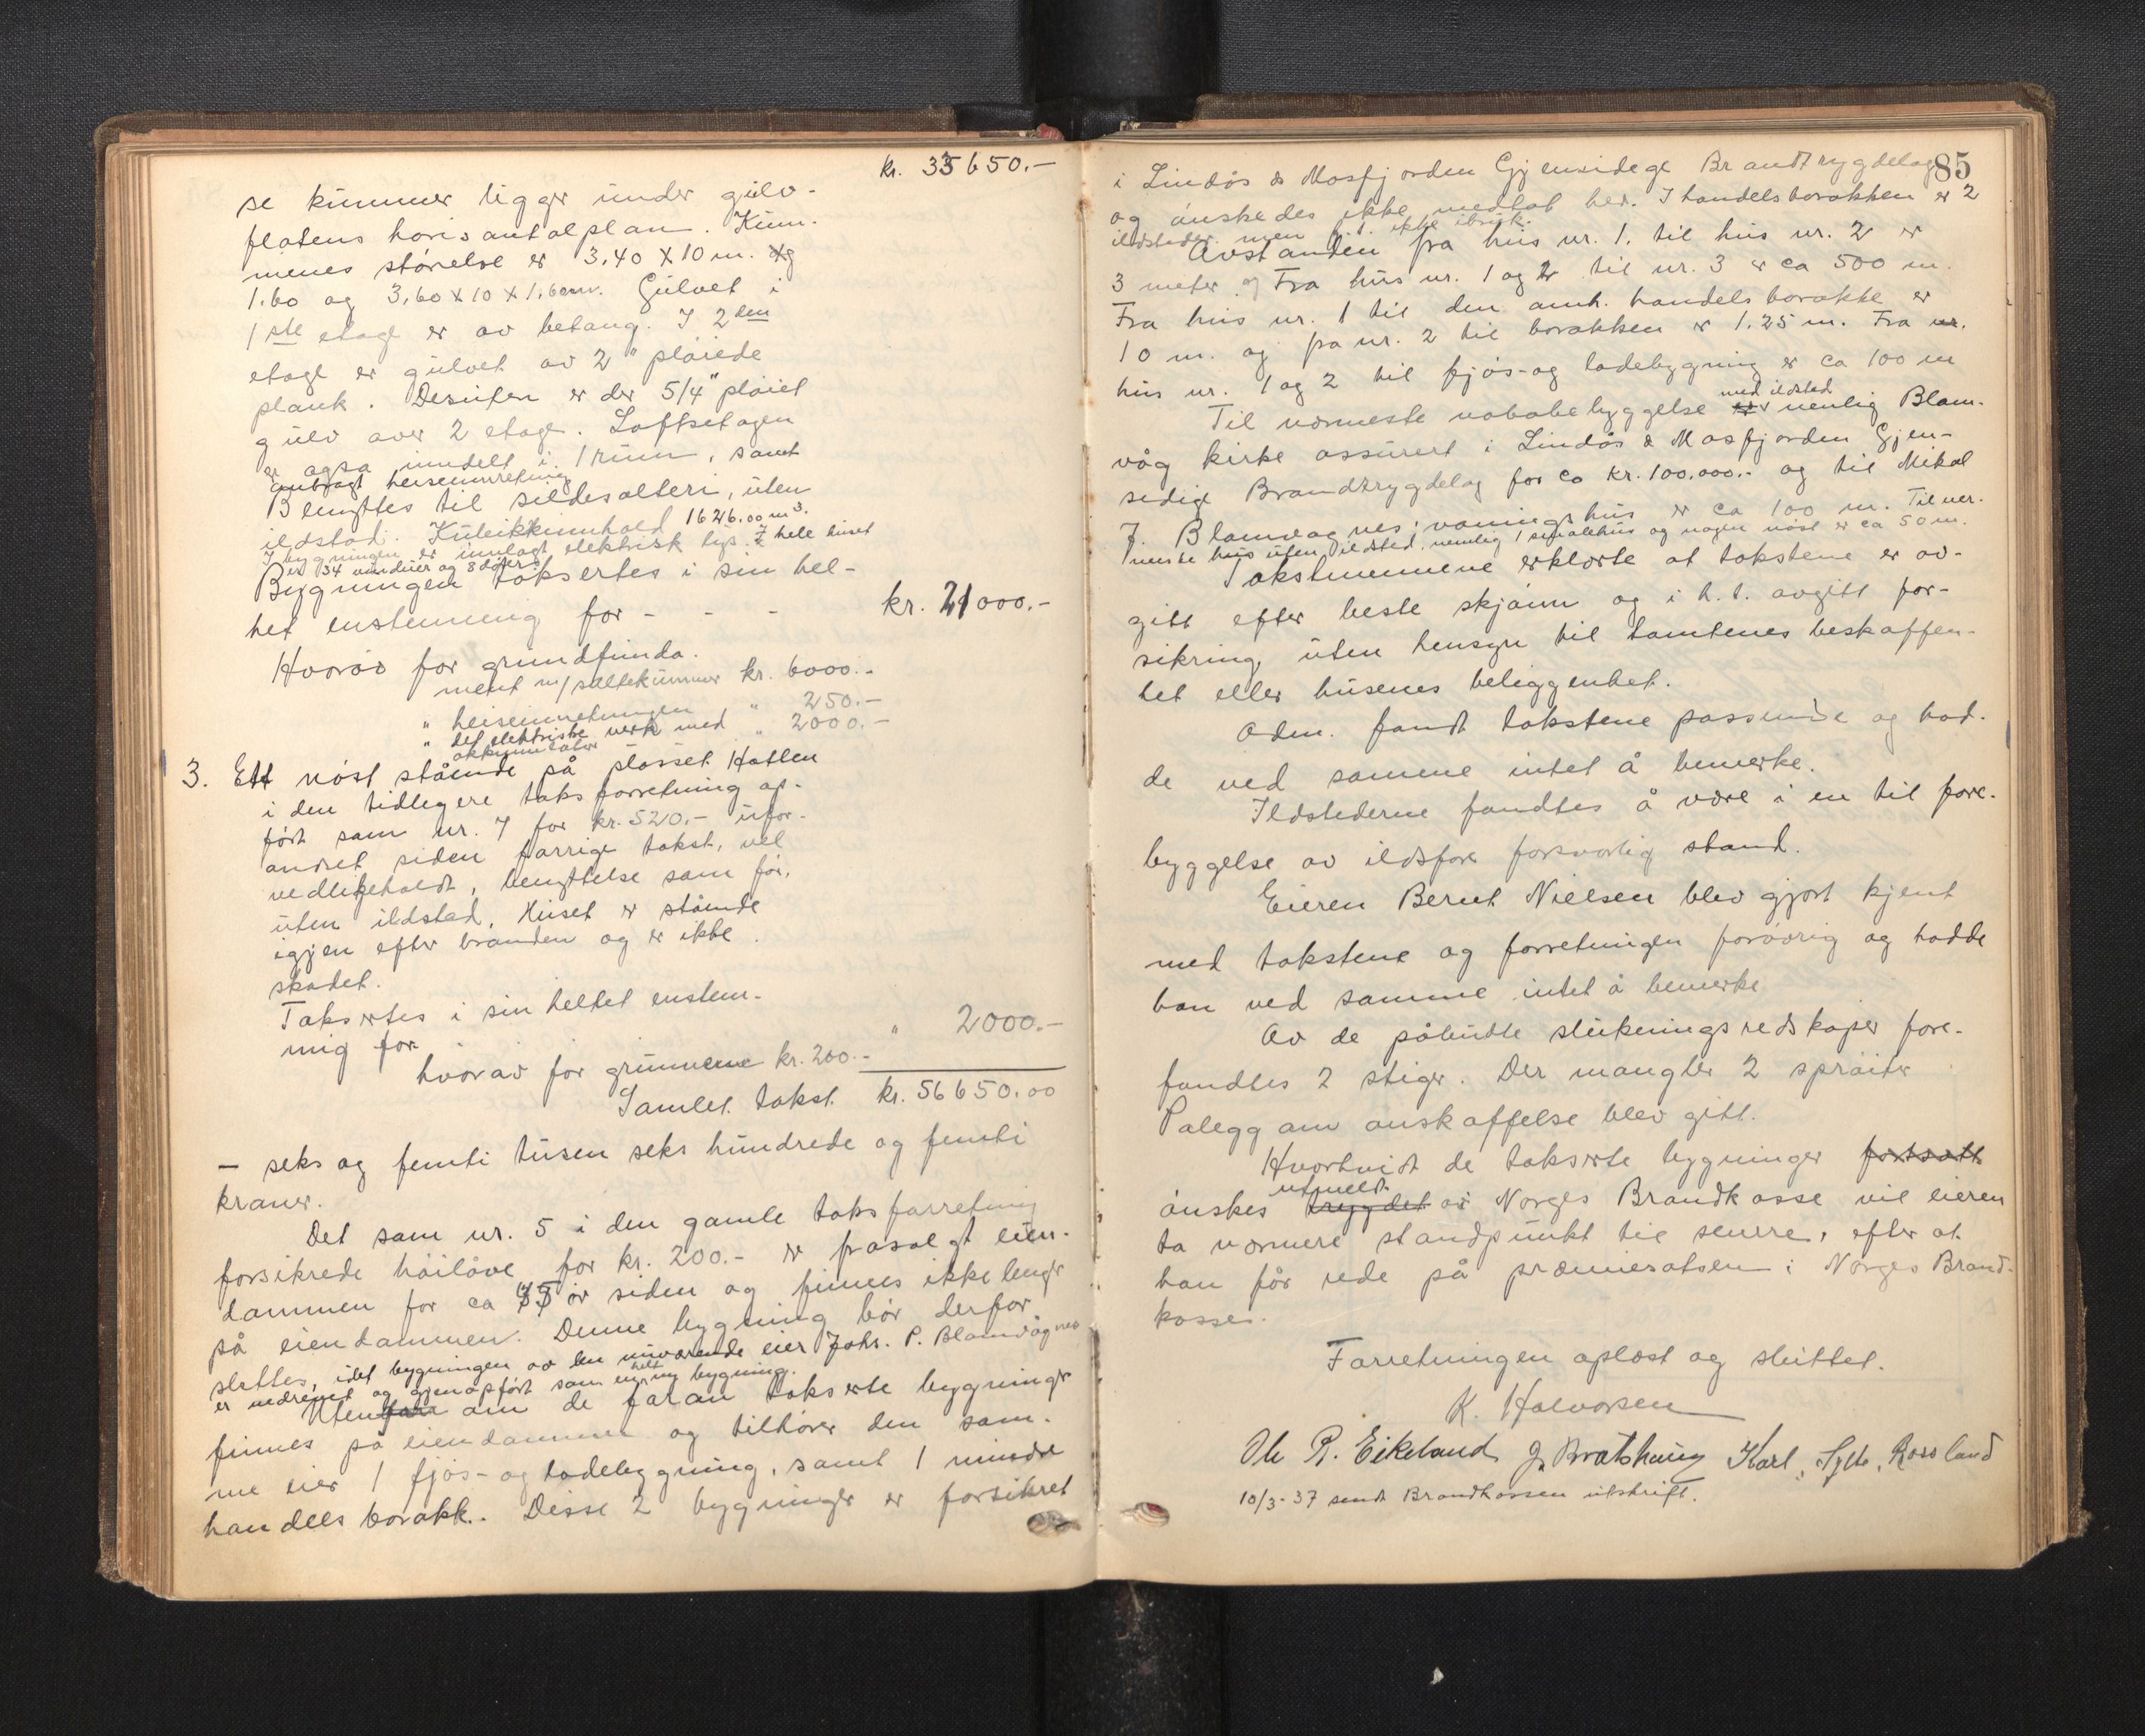 kr. 33650.-
se kummer ligger under gulv-
flatens horisantalplan. Kum-
menes störrelse er 3,40 x 10 m. og
1.60 og 3,60 x 10 x 1,60 m. Gulvet i
1ste etage er av betong. I 2den
etage er gulvet av 2" plöiede
plank. Desuten er der 5/4" plöiet
gulv over 2 etage. Loftsetagen
er ogsa inndelt i 1 rum, samt
anbragt heiseinnretning
Benyttes til sildesalteri, uten
ildsted. Kubikkinnhold 1626.00 m3.
I bygningen er innlagt elektrisk lys. I hele huset
er 34 vinduer og 8 dörer.
Bygningen taksertes i sin hel-
het enstemmig for - - - kr. 21000.-
Hvorav for grundfunda-
ment m/saltekummer kr. 6000.-
" heiseinnretningen " 250.-
" det elektriske verk med " 2000.-
akkumulator
3. Ett nöst stående på plasset Hatlen
i den tidlegere taksforretning op-
fört som nr. 7 for kr. 520.- ufor-
andret siden forrige takst, vel
vedlikeholdt, benyttelse som för,
uten ildsted. Huset er stående
igjen efter branden og er ikke
skadet.
Taksertes i sin helhet enstem-
mig for " 2000.-
hvorav for grunnene kr. 200.-
Samlet takst kr. 56650.00
- seks og femti tusen seks hundrede og femti
kroner.
Det som nr. 5 i den gamle taksforretning
forsikrede höilöve for kr. 200.- er frasolgt eien-
dommen for ca år siden og finnes ikke lenger
på eiendommen. Denne bygning bör derfor
slettes, idet bygningen av den nuværende eier Johs. P. Blomvågnes
er nedrevet og gjenopfört som en helt ny bygning.
Uten om de foran takserte bygninger
finnes på eiendommen og tilhörer den sam-
me eier 1 fjös- og ladebygning, samt 1 mindre
handels barakk. Disse 2 bygninger er forsikret
85
i Lindås & Masfjorden Gjensidege Brandtrygdelag
og önskedes ikke medtat her. I handelsbarakken er 2
ildsteder men f. t. ikke ibruk.
Avstanden fra hus nr. 1. til hus nr. 2 er
3 meter og Fra hus nr. 1 og 2 til nr. 3 er ca 500 m.
Fra hus nr. 1 til den omh. handels barakke er
10 m. og fra nr. 2 til barakken er 1,25 m. Fra nr.
hus nr. 1 og 2 til fjös- og ladebygning er ca 100 m
Til nærmeste nabobebyggelse med ildsted nemlig Blom-
våg kirke assurert i Lindås & Masfjorden Gjen-
sidige Brandtrygdelag for ca kr. 100,000.- og til Mikal
J. Blomvagnes våningshus er ca 100 m. Til nær-
meste hus uten ildsted, nemlig 1 og nogen nöst er ca 50 m.
Takstmennene erklærte at takstene er av-
gitt efter beste skjönn og i h. t. avgitt for-
sikring, uten hensyn til tomtenes beskaffen-
het eller husenes beliggenhet.
Adm. fandt takstene passende og had-
de ved samme intet å bemerke.
Ildstederne fandtes å være i en til fore-
byggelse av ildsfare forsvarlig stand.
Eieren Bernt Nielsen blev gjort kjent
med takstene og forretningen forövrig og hadde
han ved samme intet å bemerke
Av de påbudte slukningsredskaper fore-
fandtes 2 stiger. Der mangler 2 spröiter
Palegg om anskaffelse blev gitt.
Hvorhvidt de takserte bygninger fortsatt
önskes trygdet utmeldt av Norges Brandkasse vil eieren
ta nærmere standpunkt til senere, efter at
han får rede på præmiesatsen i Norges Brand-
kasse.
Forretningen oplæst og sluttet.
K. Halvorsen
Ole R. Eikeland J. Bratshaug Karl. Sylte. Rossland
10/3-37 sendt Brandkassen utskrift.